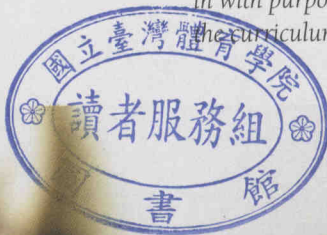 in with purpo
the curriculum
國立臺灣體育學院
讀者服務組
圖書館